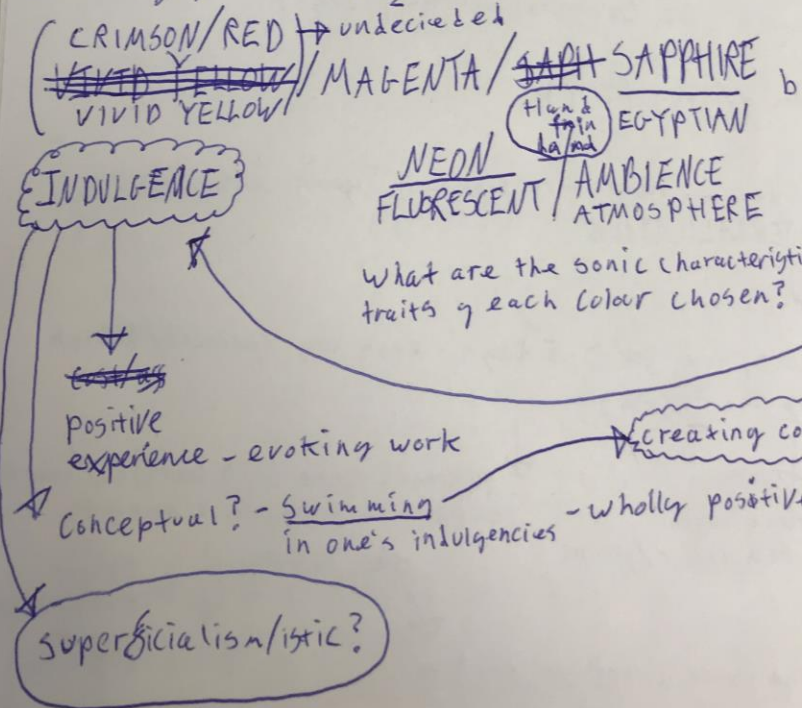 CRIMSON/RED → undecieded
VIVID YELLOW / MAGENTA / SAPH SAPPHIRE
VIVID YELLOW/
b
Hand
in
hand
EGYPTIAN
NEON / AMBIENCE
FLUORESCENT ATMOSPHERE
INDULGENCE
What are the sonic characteristi
traits of each colour chosen?
positive
experience - evoking work
creating co
Conceptual? - Swimming
in one's indulgencies
- wholly positiv
superficialism/istic?